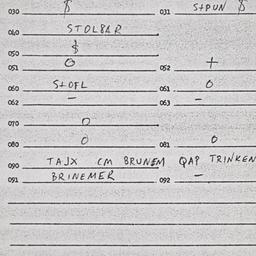 030 $ 031 S+PUN $
040 STOLBAR
050 $
051 O 052 +
060 S+OFL 061 O
062 – 063 –
070 O
080 O 081 O
090 TAJX CM BRUNEM QAP TRINKEN
091 BRINEMER 092 –